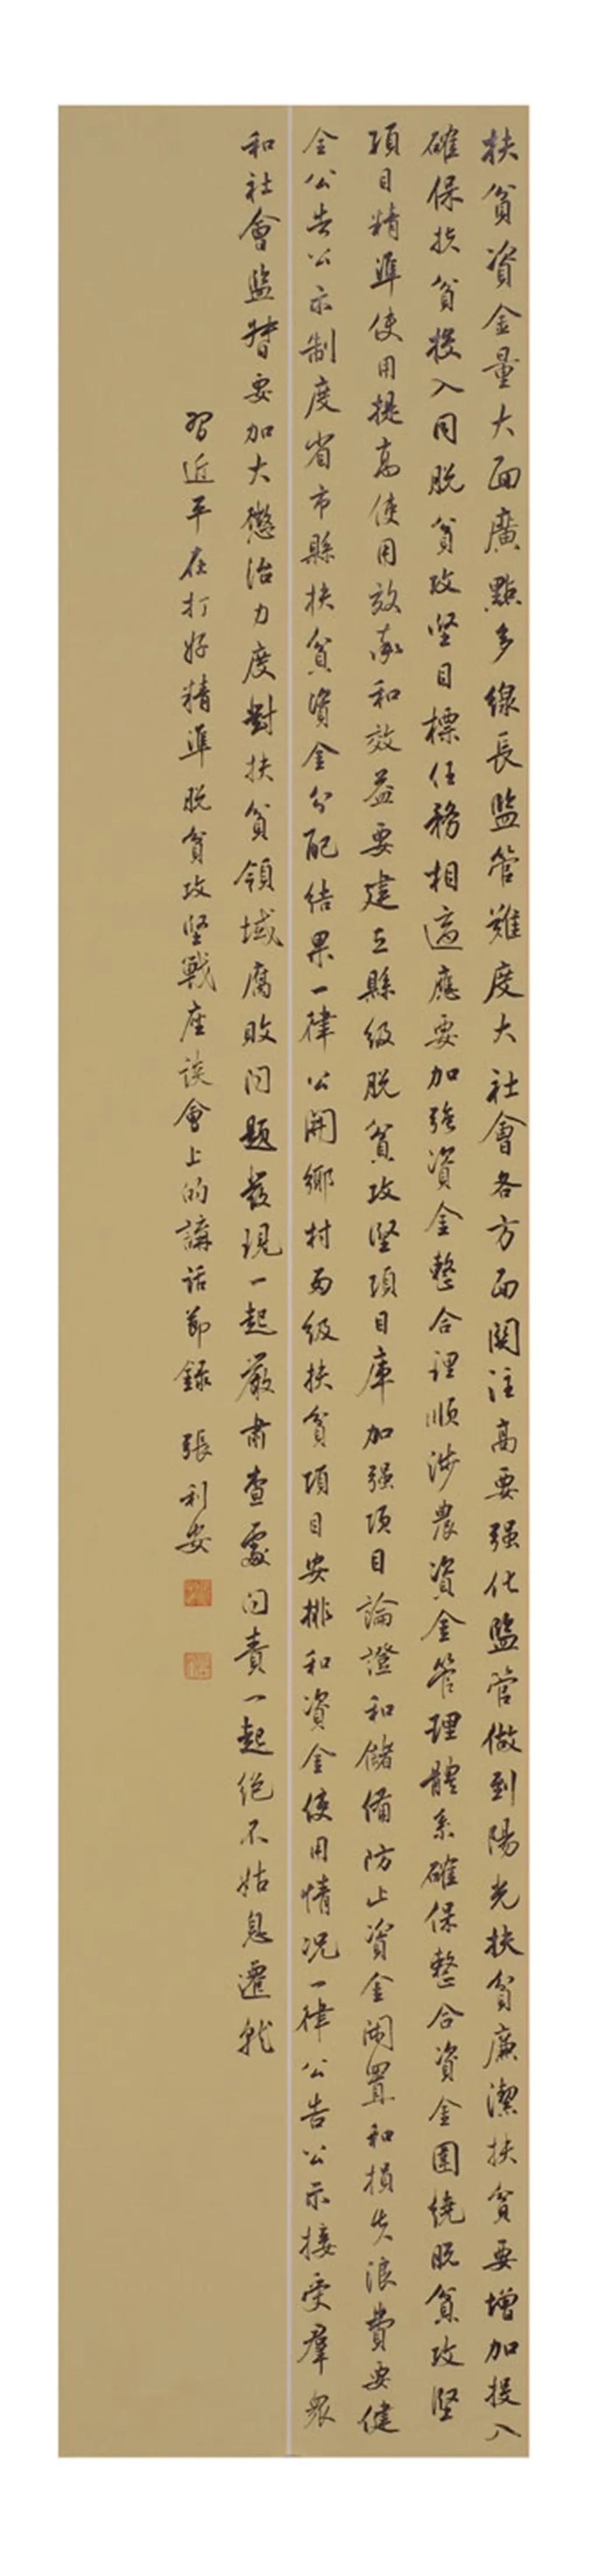 扶貧資金量大面廣點多線長監管難度大社會各方面関注高要强化監管做到陽光扶貧廉潔扶貧要增加投入
確保扶貧投入同脱貧攻坚目標任務相適應要加強資金整合理順涉農資金管理體系確保整合資金圍繞脱貧攻堅
項目精準使用提高使用效率和效益要建立縣级脱貧攻堅項目庫加强項目論證和儲備防止資金闲置和損失浪費要健
全公告公示制度省市縣扶貧資金分配结果一律公開鄉村两级扶貧項目安排和資金使用情况一律公告公示接受羣衆
和社會监督要加大懲治力度對扶貧領域腐敗问題發現一起嚴肅查處问責一起绝不姑息遷就
習近平在打好精準脱貧攻坚戰座谈會上的講话節録 張利安